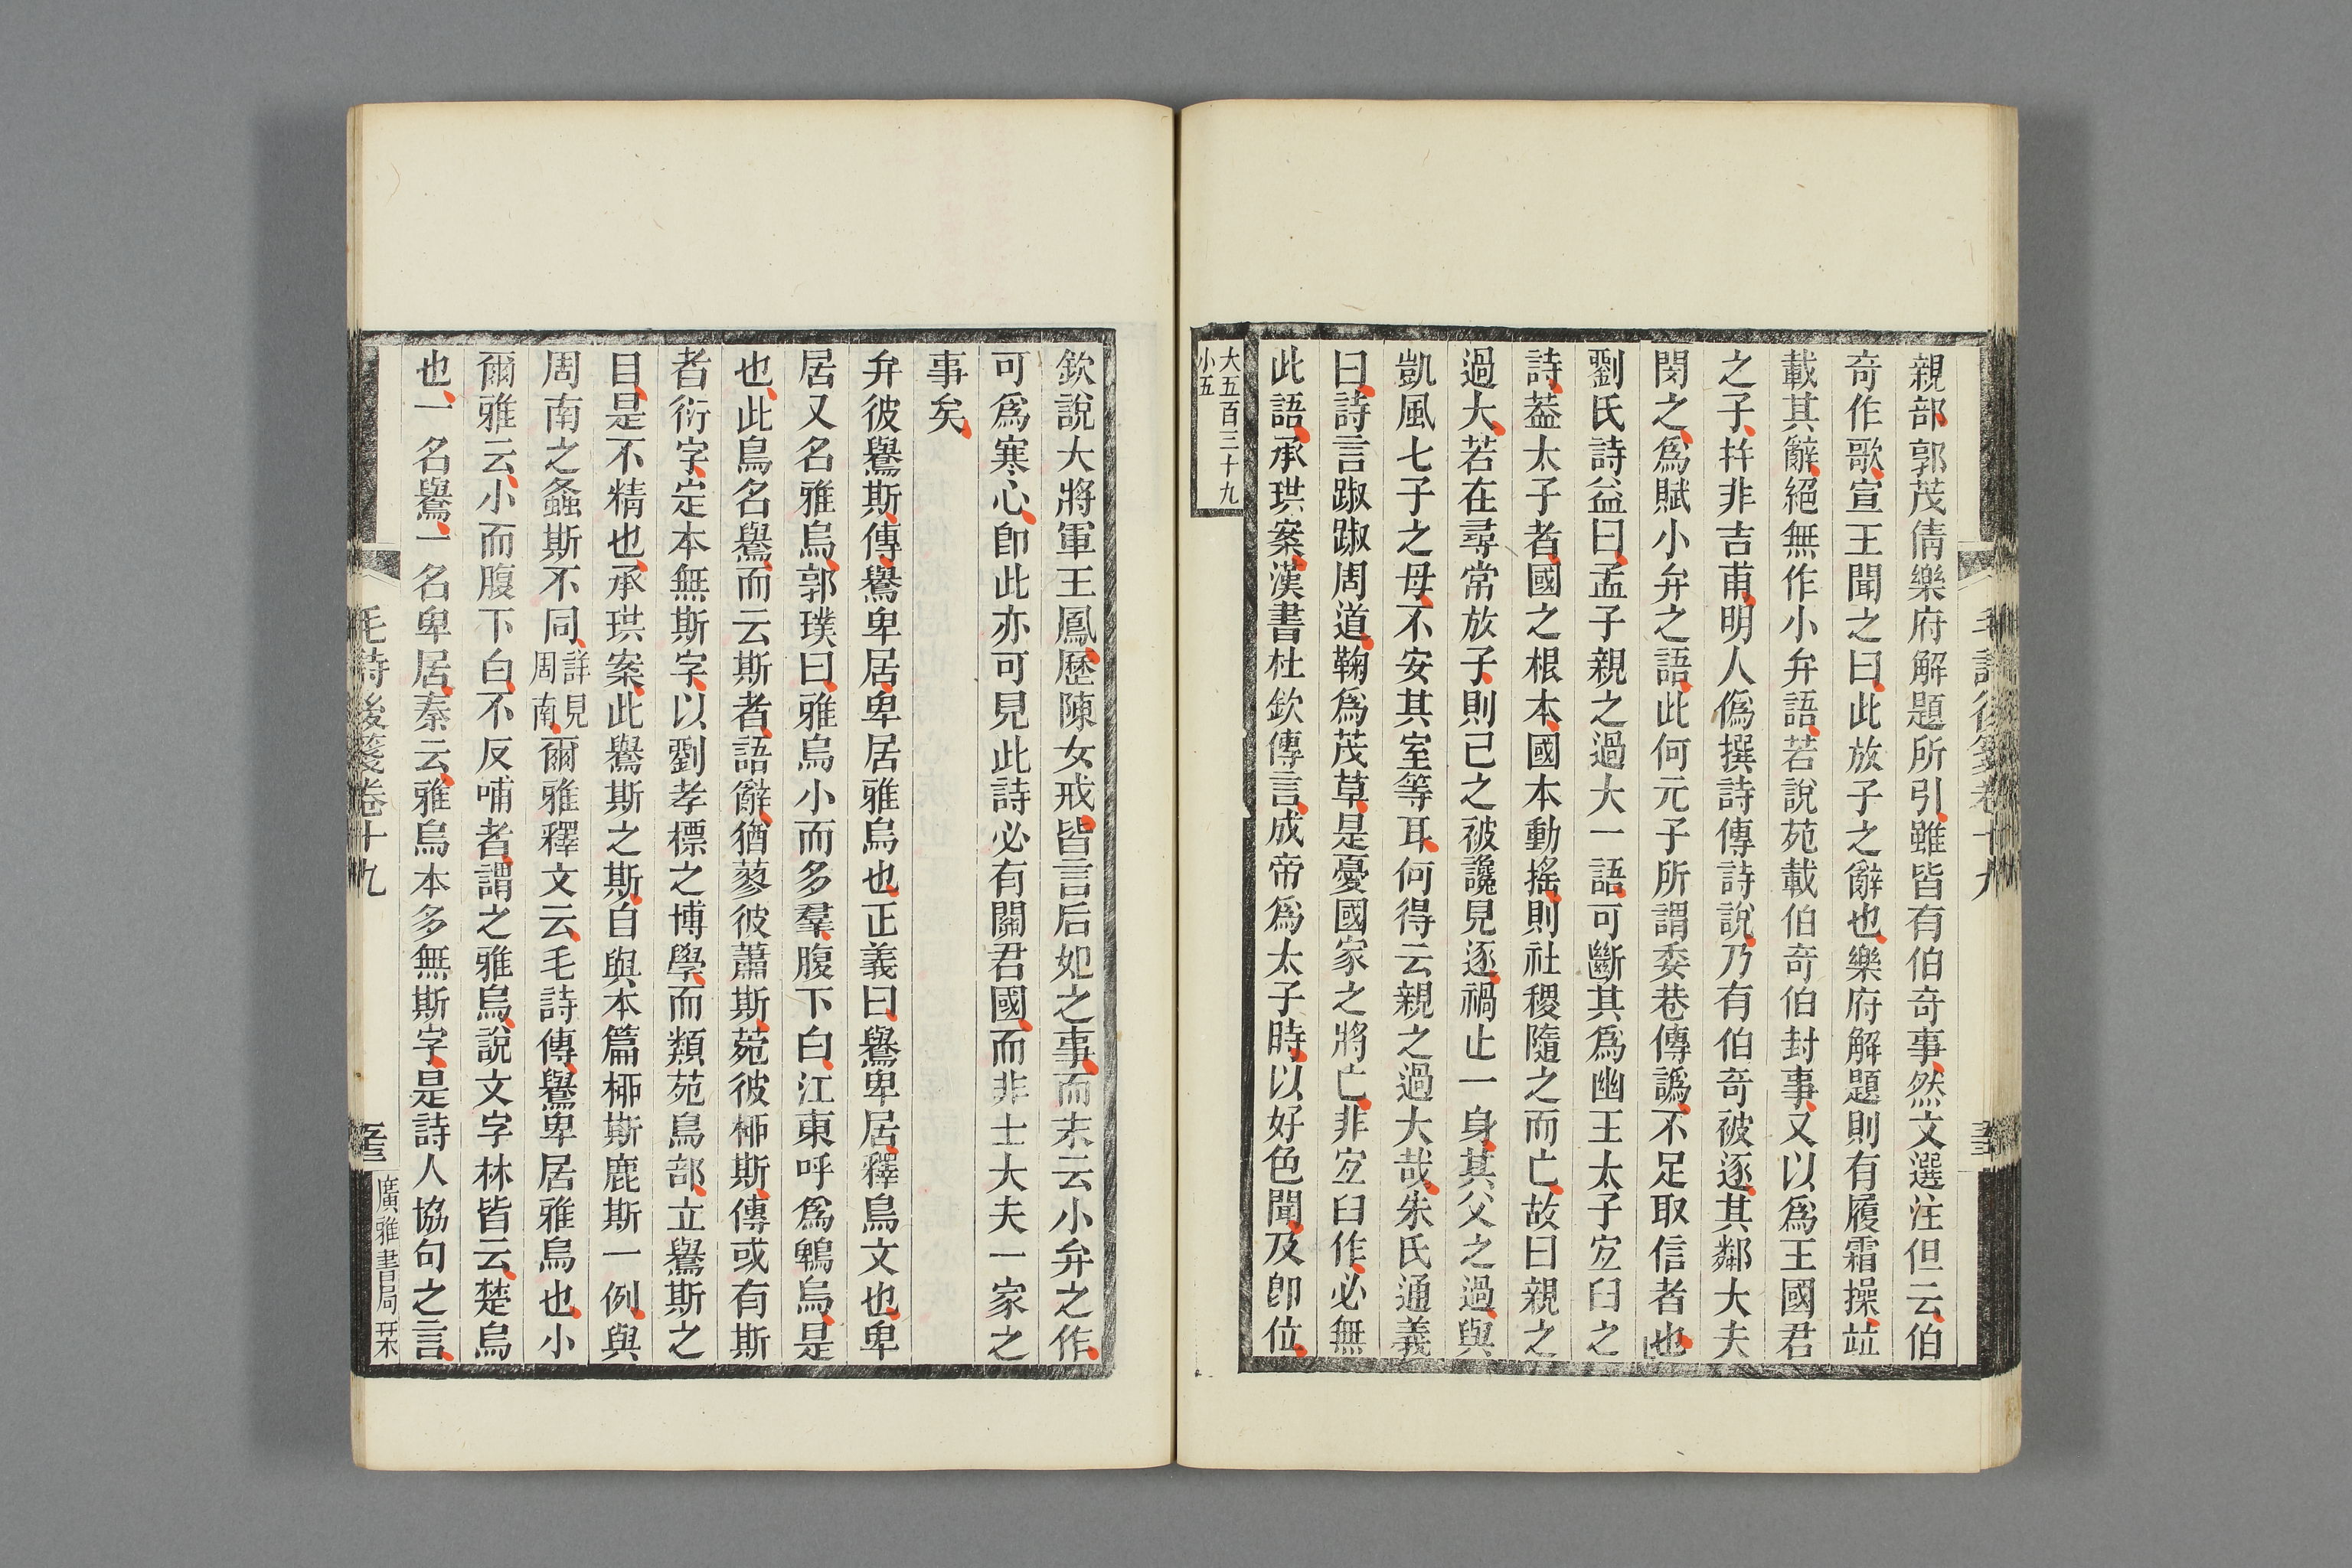 親部郭茂倩樂府解題所引雖皆有伯奇事然文選注但云伯
奇作歌宣王聞之曰此放子之辭也樂府解題則有履霜操竝
載其辭絕無作小弁語若說苑載伯奇伯封事又以爲王國君
之子幷非吉甫明人僞撰詩傳詩說乃有伯奇被逐其鄰大夫
閔之爲賦小弁之語此何元子所謂委巷傳譌不足取信者也
劉氏詩益曰孟子親之過大一語可斷其爲幽王太子宜臼之
詩葢太子者國之根本國本動搖則社稷隨之而亡故曰親之
過大若在尋常放子則己之被讒見逐禍止一身其父之過與
凱風七子之母不安其室等耳何得云親之過大哉朱氏通義
曰詩言踧踧周道鞠爲茂草是憂國家之將亡非宜臼作必無
此語承珙案漢書杜欽傳言成帝爲太子時以好色聞及卽位
大五百三十九
小五
欽說大將軍王鳳歷陳女戒皆言后妃之事而末云小弁之作
可爲寒心卽此亦可見此詩必有關君國而非士大夫一家之
事矣
弁彼鸒斯傳鸒卑居卑居雅烏也正義曰鸒卑居釋鳥文也卑
居又名雅烏郭璞曰雅烏小而多羣腹下白江東呼爲鵯烏是
也此鳥名鸒而云斯者語辭猶蓼彼蕭斯菀彼柳斯傳或有斯
者衍字定本無斯字以劉孝標之博學而類苑鳥部立鸒斯之
目是不精也承珙案此鸒斯之斯自與本篇柳斯鹿斯一例與
周南之螽斯不同詳見周南爾雅釋文云毛詩傳鸒卑居雅烏也小
爾雅云小而腹下白不反哺者謂之雅烏說文字林皆云楚烏
也一名鸒一名卑居秦云雅烏本多無斯字是詩人協句之言
毛詩後箋卷十九
廣雅書局栞